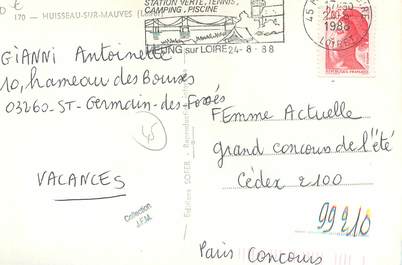 170 — HUISSEAU-SUR-MAUVES
STATION VERTE, TENNIS,
CAMPING, PISCINE
MEUNG sur LOIRE 24-8-88
1988
LOIRET
GIANNI Antoinette
10, hameau des Bourses
03260-ST-Germain-des-Fossés
45
VACANCES
Collection
J.F.M.
Editions SOFER - Reproduction
FEmme Actuelle
grand concours de l'été
Cédex 2100
99210
Paris Concours